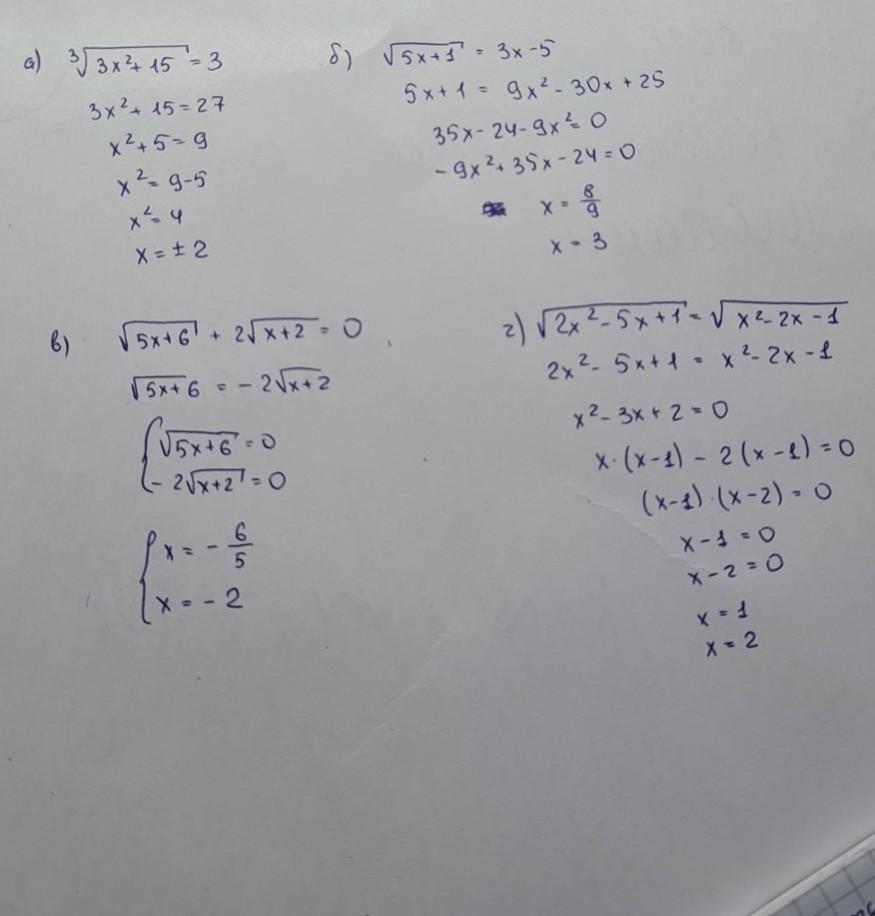 а) ∛(3x²+15) = 3
3x²+15=27
x²+5=9
x²=9-5
x²=4
x=±2
б) √(5x+1) = 3x-5
5x+1 = 9x²-30x+25
35x-24-9x²=0
-9x²+35x-24=0
x = 8/9
x = 3
в) √(5x+6) + 2√(x+2) = 0
√(5x+6) = -2√(x+2)
{ √(5x+6) = 0
-2√(x+2) = 0
{ x = -6/5
x = -2
г) √(2x²-5x+1) = √(x²-2x-1)
2x²-5x+1 = x²-2x-1
x²-3x+2=0
x·(x-1)-2(x-1)=0
(x-1)·(x-2)=0
x-1=0
x-2=0
x=1
x=2